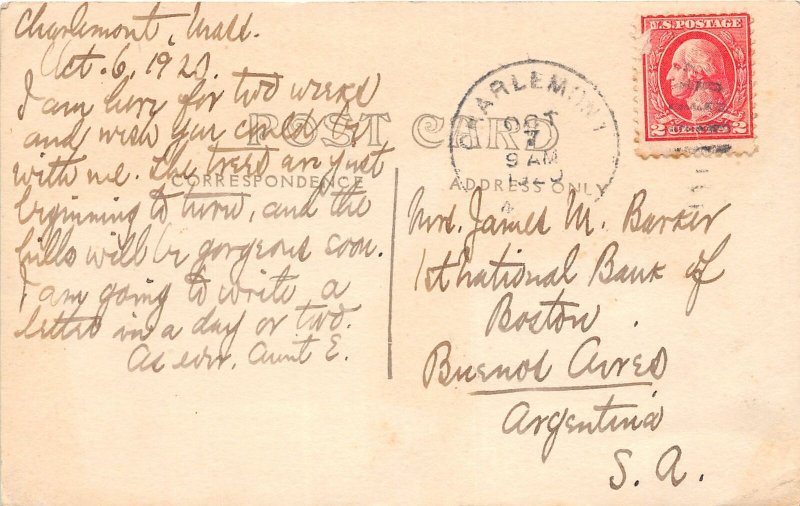 Charlemont, Mass.
Oct. 6, 1920.
I am here for two weeks
and wish you could be
with me. The trees are just
beginning to turn, and the
hills will be gorgeous soon.
I am going to write a
letter in a day or two.
As ever, Aunt E.
POST CARD
CORRESPONDENCE
ADDRESS ONLY
CHARLEMONT
OCT
7
9 AM
U.S. POSTAGE
2 CENTS 2
Mrs. James M. Barker
1st National Bank of
Boston.
Buenos Aires
Argentina
S. A.